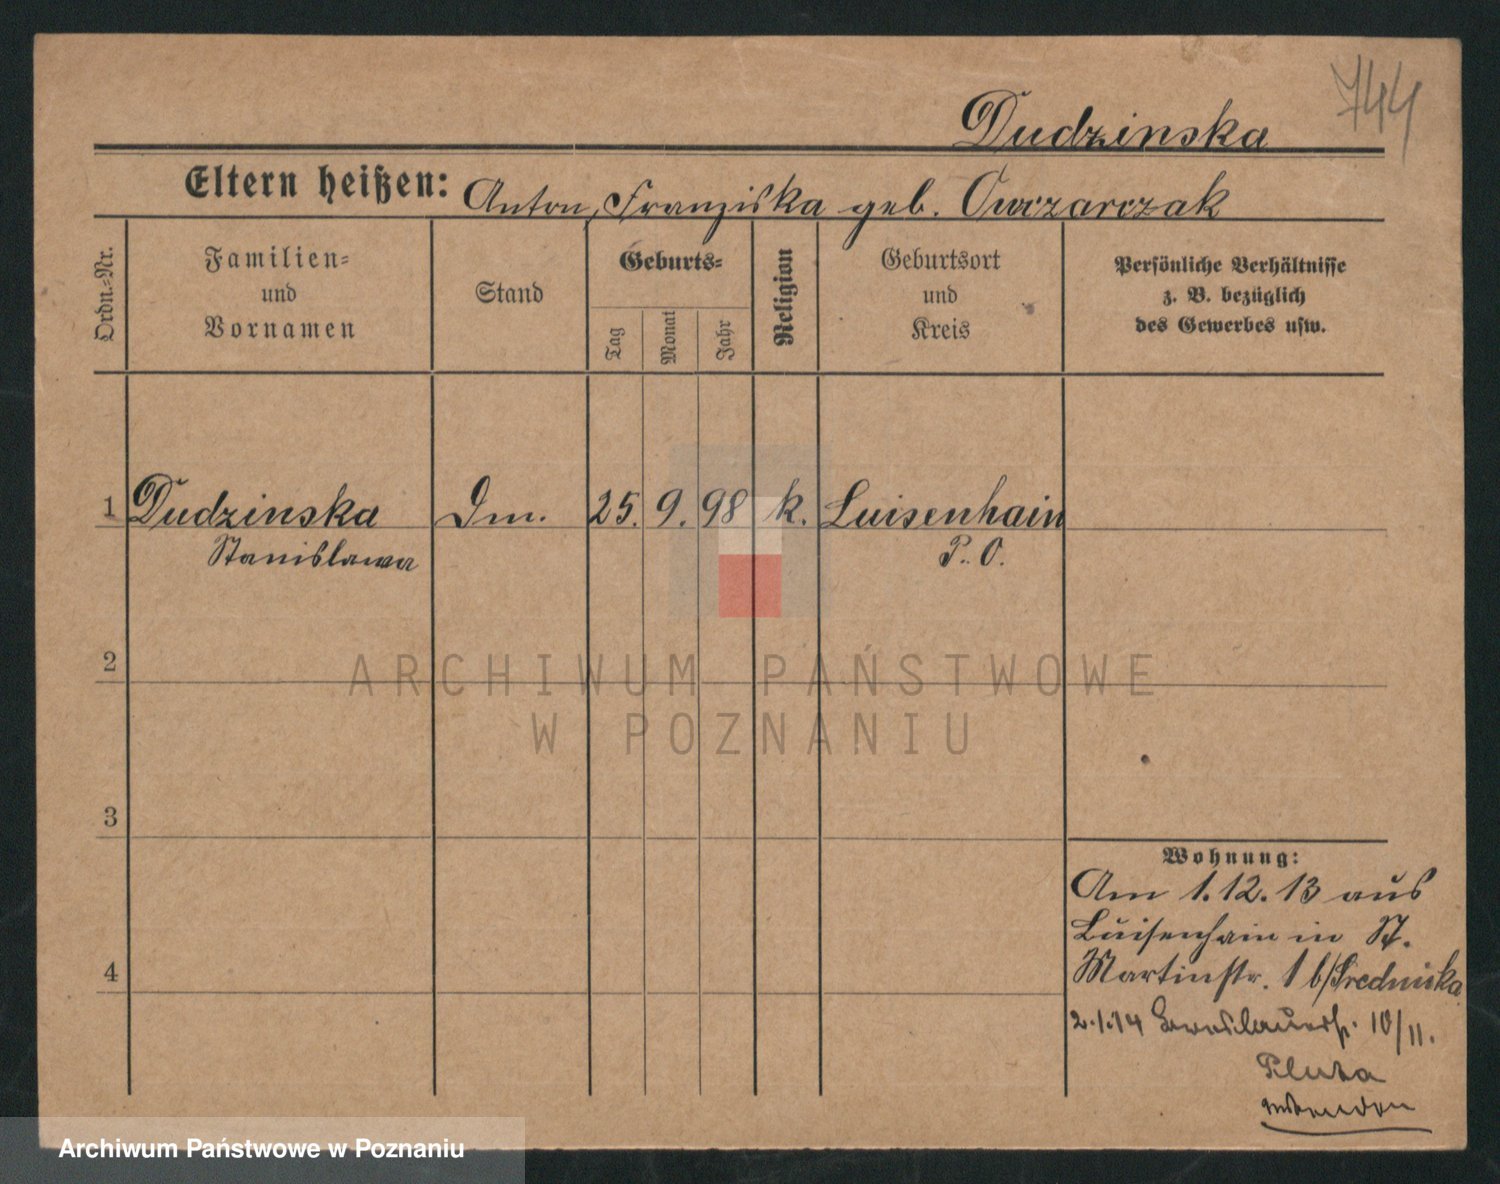 744
Dudzinska
Eltern heißen: Anton, Franziska geb. Owczarczak
Ordn.-Nr.
Familien-
und
Vornamen
Stand
Geburts-
Tag
Monat
Jahr
Religion
Geburtsort
und
Kreis
Persönliche Verhältnisse
z. B. bezüglich
des Gewerbes usw.
1 Dudzinska Dm. 25. 9. 98 k. Luisenhain
Stanislawa P. O.
2
ARCHIWUM PAŃSTWOWE
W POZNANIU
3
Wohnung:
Am 1.12.13 aus
Luisenhain in St.
4
Martinstr. 1 b/Srednicka
2.1.14 Breslauerstr. 10/11.
Pluta
Archiwum Państwowe w Poznaniu